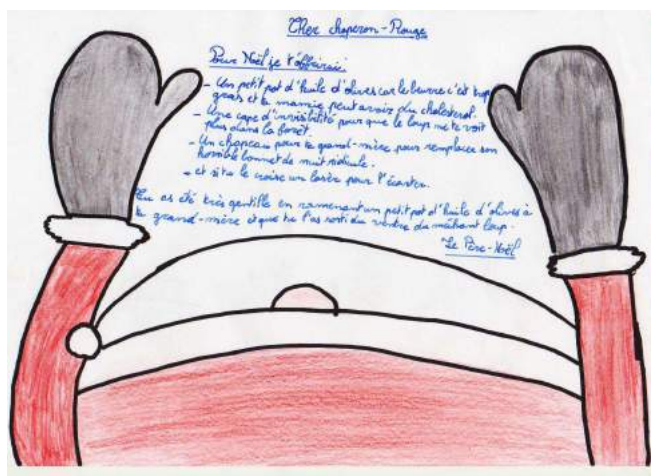 Cher chaperon-Rouge
Pour Noël je t'offrirai:
- Un petit pot d'huile d'olives car le beurre c'est trop
gras et ta mamie peut avoir du cholesterol.
- Une cape d'invisibilité pour que le loup ne te voit
plus dans la forêt.
- Un chapeau pour ta grand-mère pour remplacer son
horrible bonnet de nuit ridicule.
- et si tu le croise un laser pour l'écarter.
Tu as été très gentille en ramenant un petit pot d'huile d'olives à
ta grand-mère et que tu l'as sorti du ventre du méchant loup.
Le Père-Noël